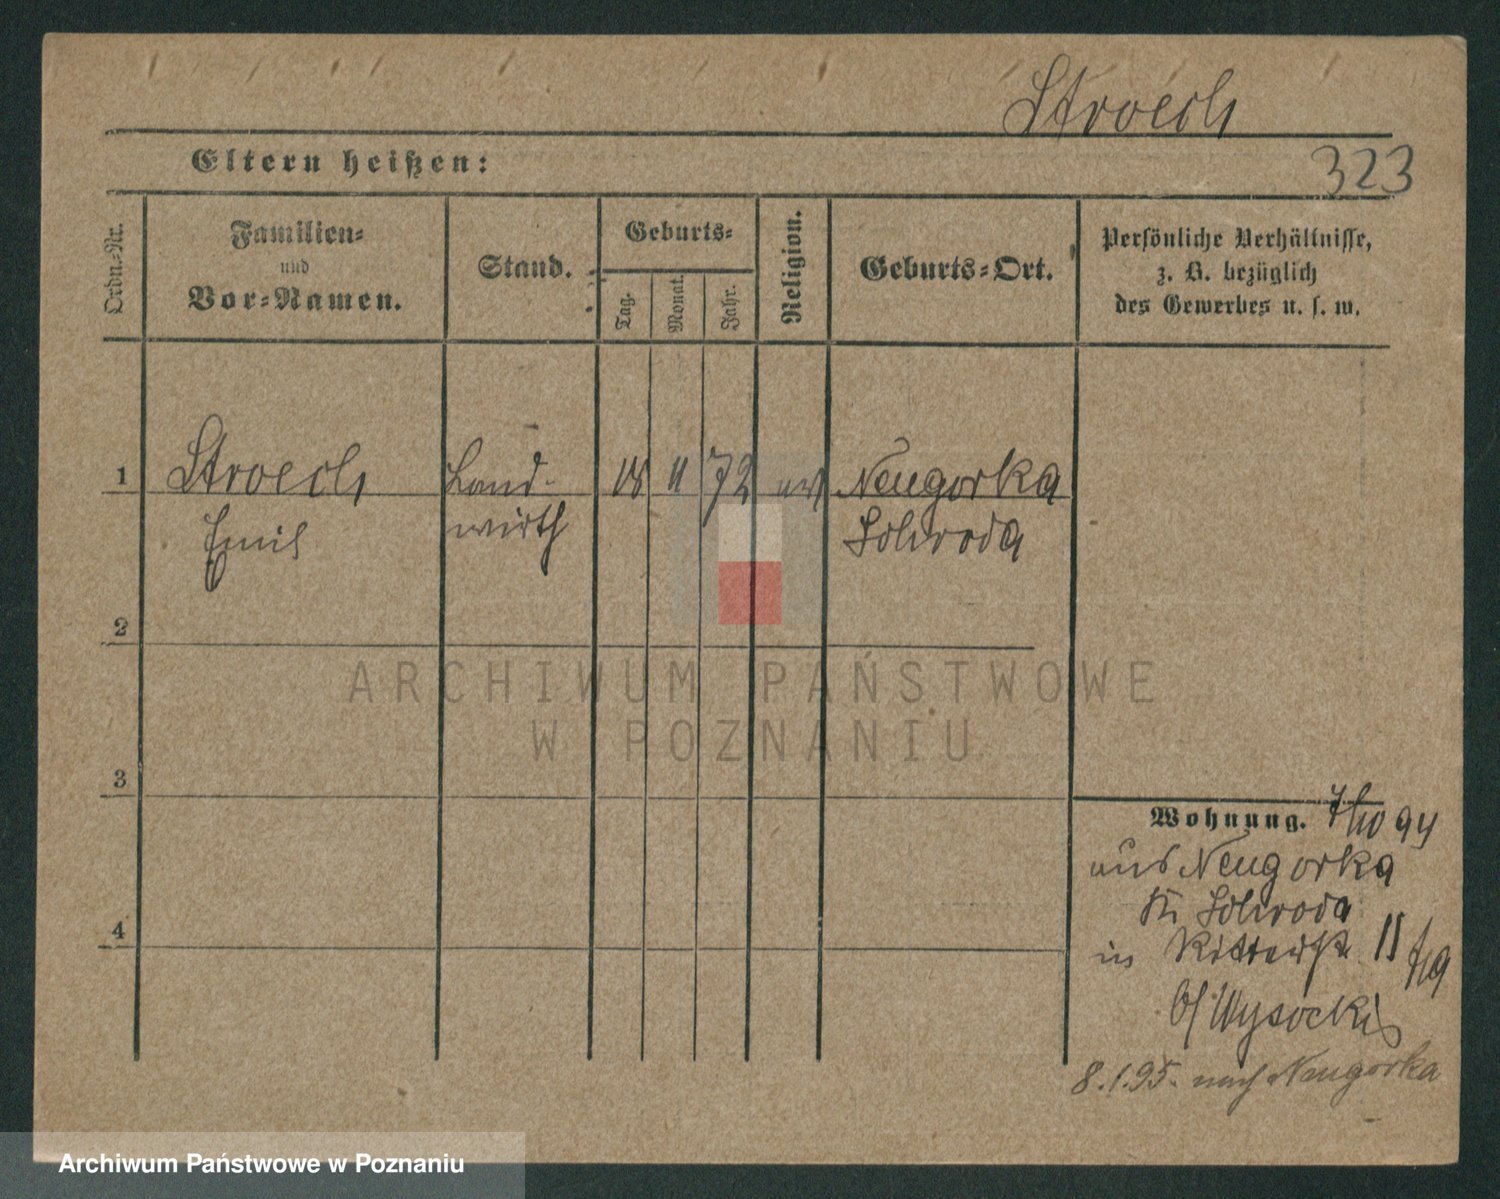 Stroech
Eltern heißen:
323
Ordn.-Nr.
Familien-
und
Vor-Namen.
Stand.
Geburts-
Tag.
Monat.
Jahr.
Religion.
Geburts-Ort.
Persönliche Verhältnisse,
z. B. bezüglich
des Gewerbes u. s. w.
1
Stroech
Emil
Land-
wirth
18
11
72
Neugorka
Schroda
2
3
4
ARCHIWUM PAŃSTWOWE
W POZNANIU
Wohnung. 7/10 94
aus Neugorka
Kr Schroda
in Ritterstr 11
b/ Wysocki
8.1.95. nach Neugorka
Archiwum Państwowe w Poznaniu